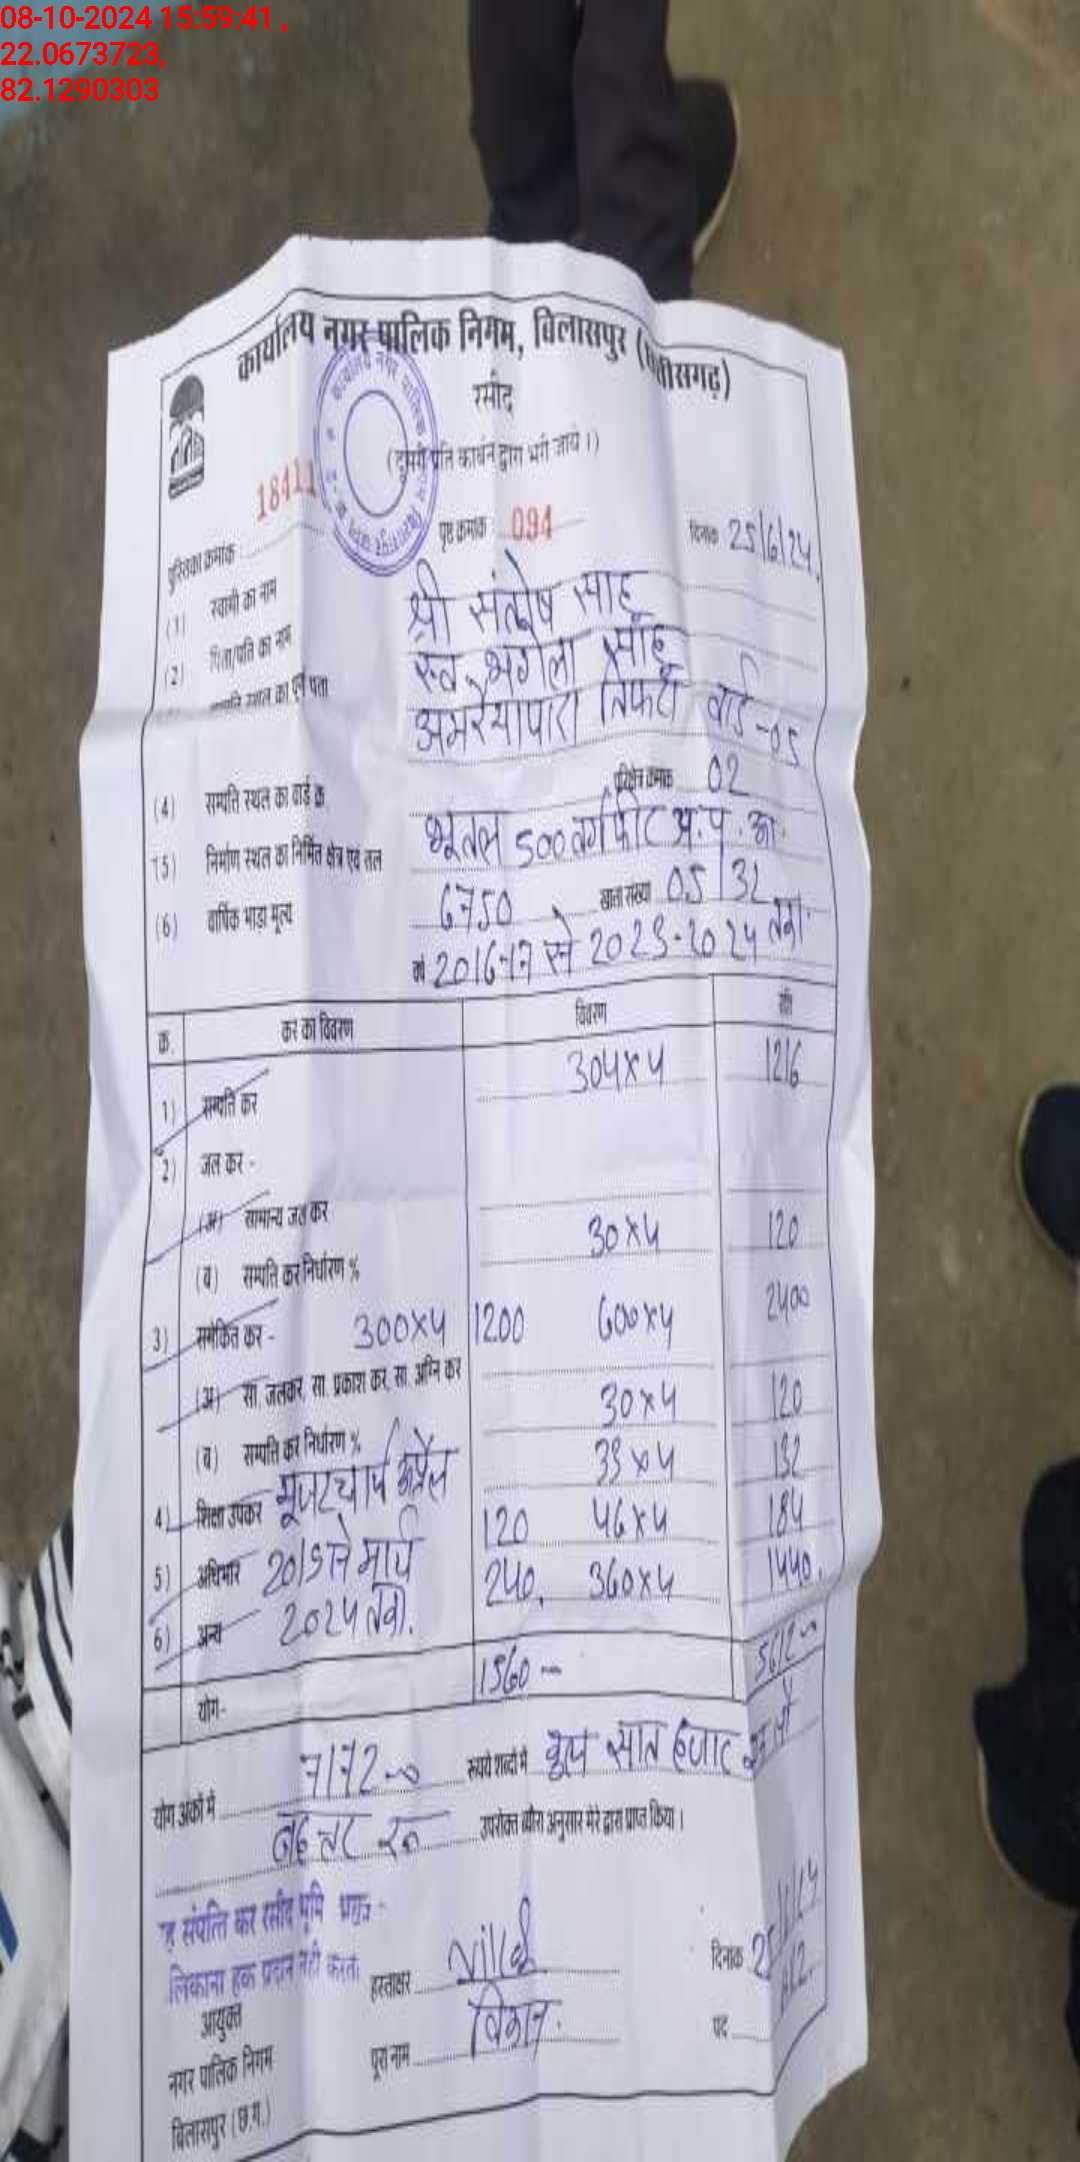 08-10-2024 15:59:41 ,
22.0673723,
82.1290303
कार्यालय नगर पालिक निगम, बिलासपुर (छत्तीसगढ़)
रसीद
(दूसरी प्रति कार्बन द्वारा भरी जाये ।)
पुस्तिका क्रमांक : 18411 पृष्ट क्रमांक : 094 दिनांक 25/6/24
(1) स्वामी का नाम श्री संतोष साहू
(2) पिता/पति का नाम स्व. भगेला साहू
स्थल का पूर्ण पता अमरैयापारा तिफरा वार्ड -05
(4) सम्पत्ति स्थल का वार्ड क्र परिक्षेत्र क्रमांक 02
(5) निर्माण स्थल का निर्मित क्षेत्र एवं तल भूतल 500 वर्गफीट
(6) वार्षिक भाड़ा मूल्य 6750 खाता संख्या 05/32
वर्ष 2016-17 से 2023-2024 तक
क्र. कर का विवरण विवरण राशि
1) सम्पत्ति कर 304×4 1216
2) जल कर -
(अ) सामान्य जल कर
(ब) सम्पत्ति कर निर्धारण % 30×4 120
3) समेकित कर - 300×4 1200 600×4 2400
(अ) सा. जलकर, सा. प्रकाश कर, सा. अग्नि कर
(ब) सम्पत्ति कर निर्धारण % 30×4 120
33×4 132
4) शिक्षा उपकर यूजर चार्ज अप्रैल 120 46×4 184
5) अधिभार 2019 से मार्च 240. 360×4 1440.
6) अन्य 2024 तक.
योग- 1560 5612
योग अंकों में 7172 रूपये शब्दों में कुल सात हजार एक सौ
बहत्तर रू उपरोक्त ब्यौरा अनुसार मेरे द्वारा प्राप्त किया ।
संपत्ति कर रसीद भूमि
हक प्रदान नही करता
हस्ताक्षर दिनांक
आयुक्त
नगर पालिक निगम
पूरा नाम पद
बिलासपुर (छ.ग.)